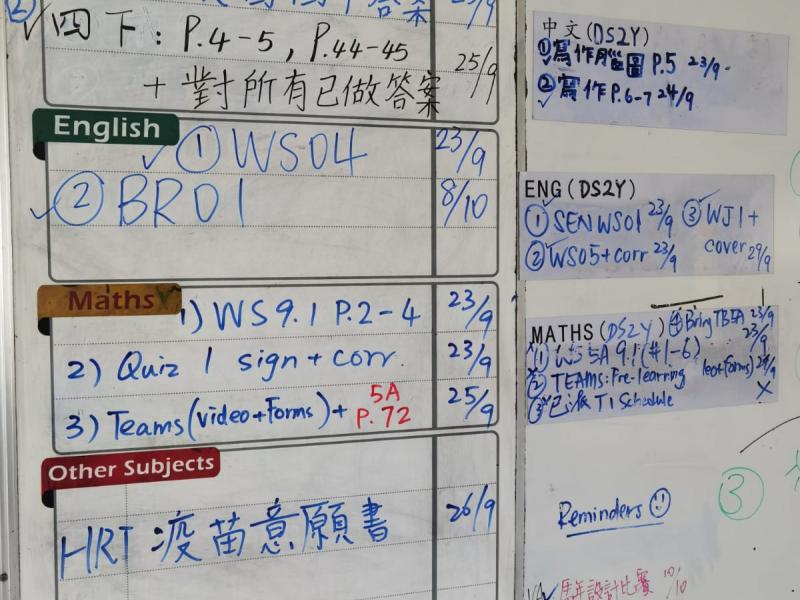 ② 答案 23/9
四下：P.4-5, P.44-45
+ 對所有已做答案 25/9
English
① WS04 23/9
② BR01 8/10
Maths
1) WS 9.1 P.2-4 23/9
2) Quiz 1 sign + corr. 23/9
3) Teams (video+Forms) + 5A P.72 25/9
Other Subjects
HRT 疫苗意願書 26/9
中文 (DS2Y)
① 寫作腦圖 P.5 23/9
② 寫作 P.6-7 24/9
ENG (DS2Y)
① SEN WS01 23/9 ③ WJ1 +
② WS05 + corr 23/9 cover 29/9
MATHS (DS2Y) ④ Bring TB5A 23/9
① WS 5A 9.1 (#1-6) 23/9
② TEAMS: Pre-learning
③ 已派 T1 Schedule
Reminders
③
設計比賽 10/10